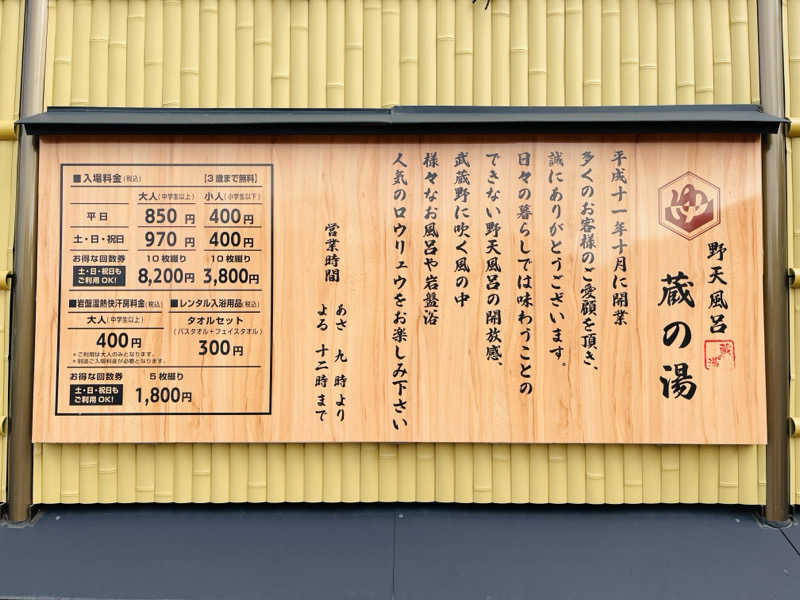 ゆ
野天風呂
蔵の湯
蔵の湯
平成十一年十月に開業
多くのお客様のご愛顧を頂き、
誠にありがとうございます。
日々の暮らしでは味わうことの
できない野天風呂の開放感、
武蔵野に吹く風の中
様々なお風呂や岩盤浴
人気のロウリュウをお楽しみ下さい
営業時間
あさ 九 時より
よる 十二時まで
■入場料金(税込) 【3歳まで無料】
大人(中学生以上) 小人(小学生以下)
平日 850円 400円
土・日・祝日 970円 400円
お得な回数券 10枚綴り 10枚綴り
土・日・祝日も
ご利用OK! 8,200円 3,800円
■岩盤温熱快汗房料金(税込)
大人(中学生以上)
400円
*ご利用は大人のみとなります。
*別途ご入場料金が必要となります。
■レンタル入浴用品(税込)
タオルセット
(バスタオル+フェイスタオル)
300円
お得な回数券 5枚綴り
土・日・祝日も
ご利用OK! 1,800円